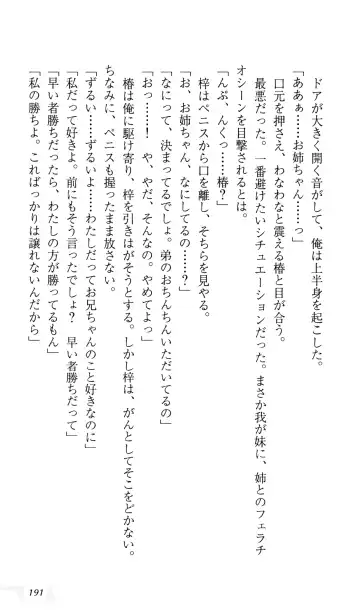 ドアが大きく開く音がして、俺は上半身を起こした。
「ああぁ……お姉ちゃん……っ」
口元を押さえ、わなわなと震える椿と目が合う。
最悪だった。一番避けたいシチュエーションだった。まさか我が妹に、姉とのフェラチ
オシーンを目撃されるとは。
「んぷ、んくっ……椿?」
梓はペニスから口を離し、そちらを見やる。
「お、お姉ちゃん、なにしてるの……?」
「なにって、決まってるでしょ。弟のおちんちんいただいてるの」
「おっ……! や、やだ、そんなの。やめてよっ」
椿は俺に駆け寄り、梓を引きはがそうとする。しかし梓は、がんとしてそこをどかない。
ちなみに、ペニスも握ったまま放さない。
「ずるい……ずるいよ……わたしだってお兄ちゃんのこと好きなのに」
「私だって好きよ。前にもそう言ったでしょ? 早い者勝ちだって」
「早い者勝ちだったら、わたしの方が勝ってるもん」
「私の勝ちよ。こればっかりは譲れないんだから」
191